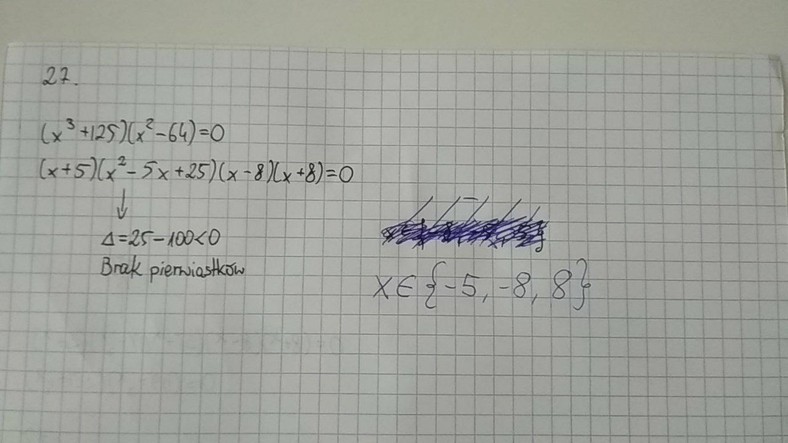 27.
(x³+125)(x²-64)=0
(x+5)(x²-5x+25)(x-8)(x+8)=0
↓
Δ=25-100<0
Brak pierwiastków
x∈{-5,-8,8}